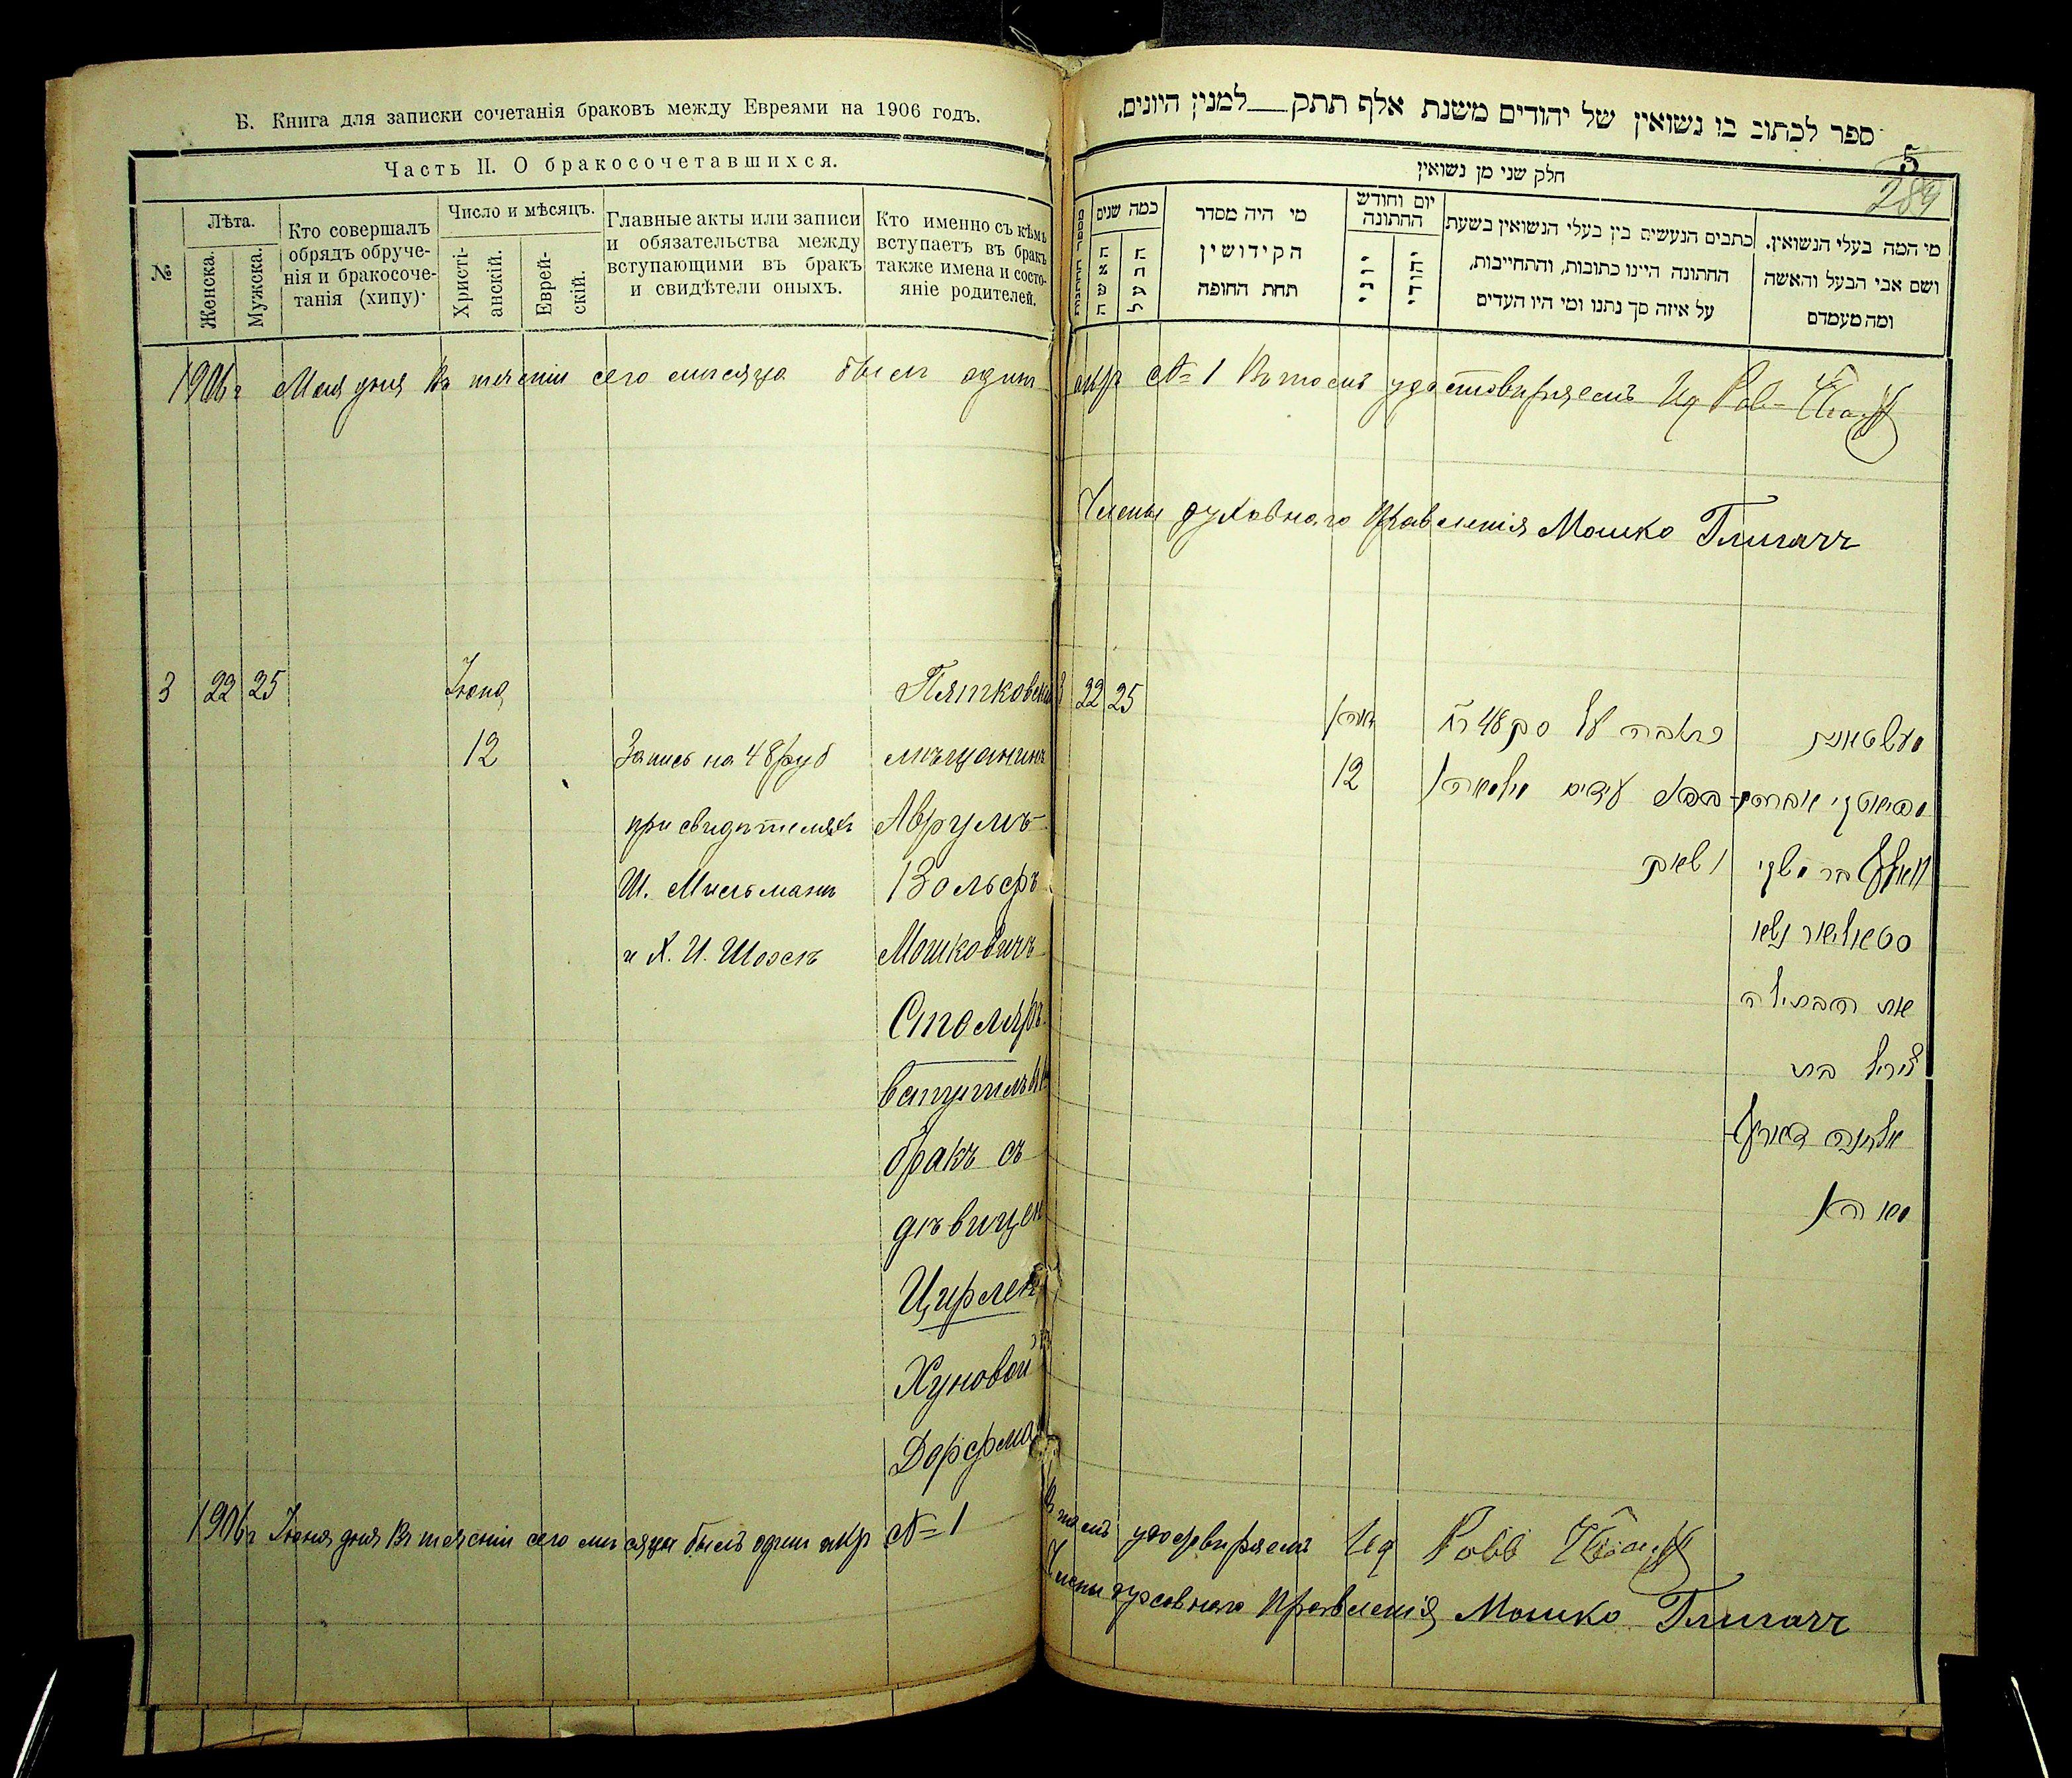 Б. Книга для записки сочетанія браковъ между Евреями на 1906 годъ.
Часть II. О бракосочетавшихся.
№
Лѣта.
Женска.
Мужска.
Кто совершалъ
обрядъ обруче-
нія и бракосоче-
танія (хипу)
Число и мѣсяцъ.
Христі-
анскій.
Еврей-
скій.
Главные акты или записи
и обязательства между
вступающими въ бракъ
и свидѣтели оныхъ.
Кто именно съ кѣмъ
вступаетъ въ бракъ
также имена и состо-
яніе родителей.
1906 г Мая дня Въ теченіи сего мѣсяца былъ одинъ
3 22 25
Іюня
12
Запись на 48 руб
при свидѣтеляхъ
Ш. Мильманъ
и Х. И. Шоэлъ
Пятковскій
мѣщанинъ
Аврумъ-
Вольфъ
Мошковичъ
Столяръ
вступилъ въ
бракъ съ
дѣвицей
Цирлей
Хуновой
Дорфма
1906 г Іюня дня Въ теченіи сего мѣсяца былъ одинъ акр № 1
ספר לכתוב בו נשואין של יהודים משנת אלף תתק למנין היונים.
5
289
חלק שני מן נשואין
מספר החתונות
כמה שנים
האשה
הבעל
מי היה מסדר
הקידושין
תחת החופה
יום וחודש
החתונה
יוני
יהודי
כתבים הנעשים בין בעלי הנשואין בשעת
החתונה היינו כתובות, והתחייבות,
על איזה סך נתנו ומי היו העדים
מי המה בעלי הנשואין.
ושם אבי הבעל והאשה
ומה מעמדם
акр № 1 Въ томъ удостовѣряемъ Ид Рав
Члены духовнаго Правленія Мошко Глигачъ
3 22 25
12
סטאליאר נשא
את הבתולה
צירל בת
אלחנה דארף
מאן
Въ томъ удостовѣряемъ Ид Равв
Члены духовнаго Правленія Мошко Глигачъ